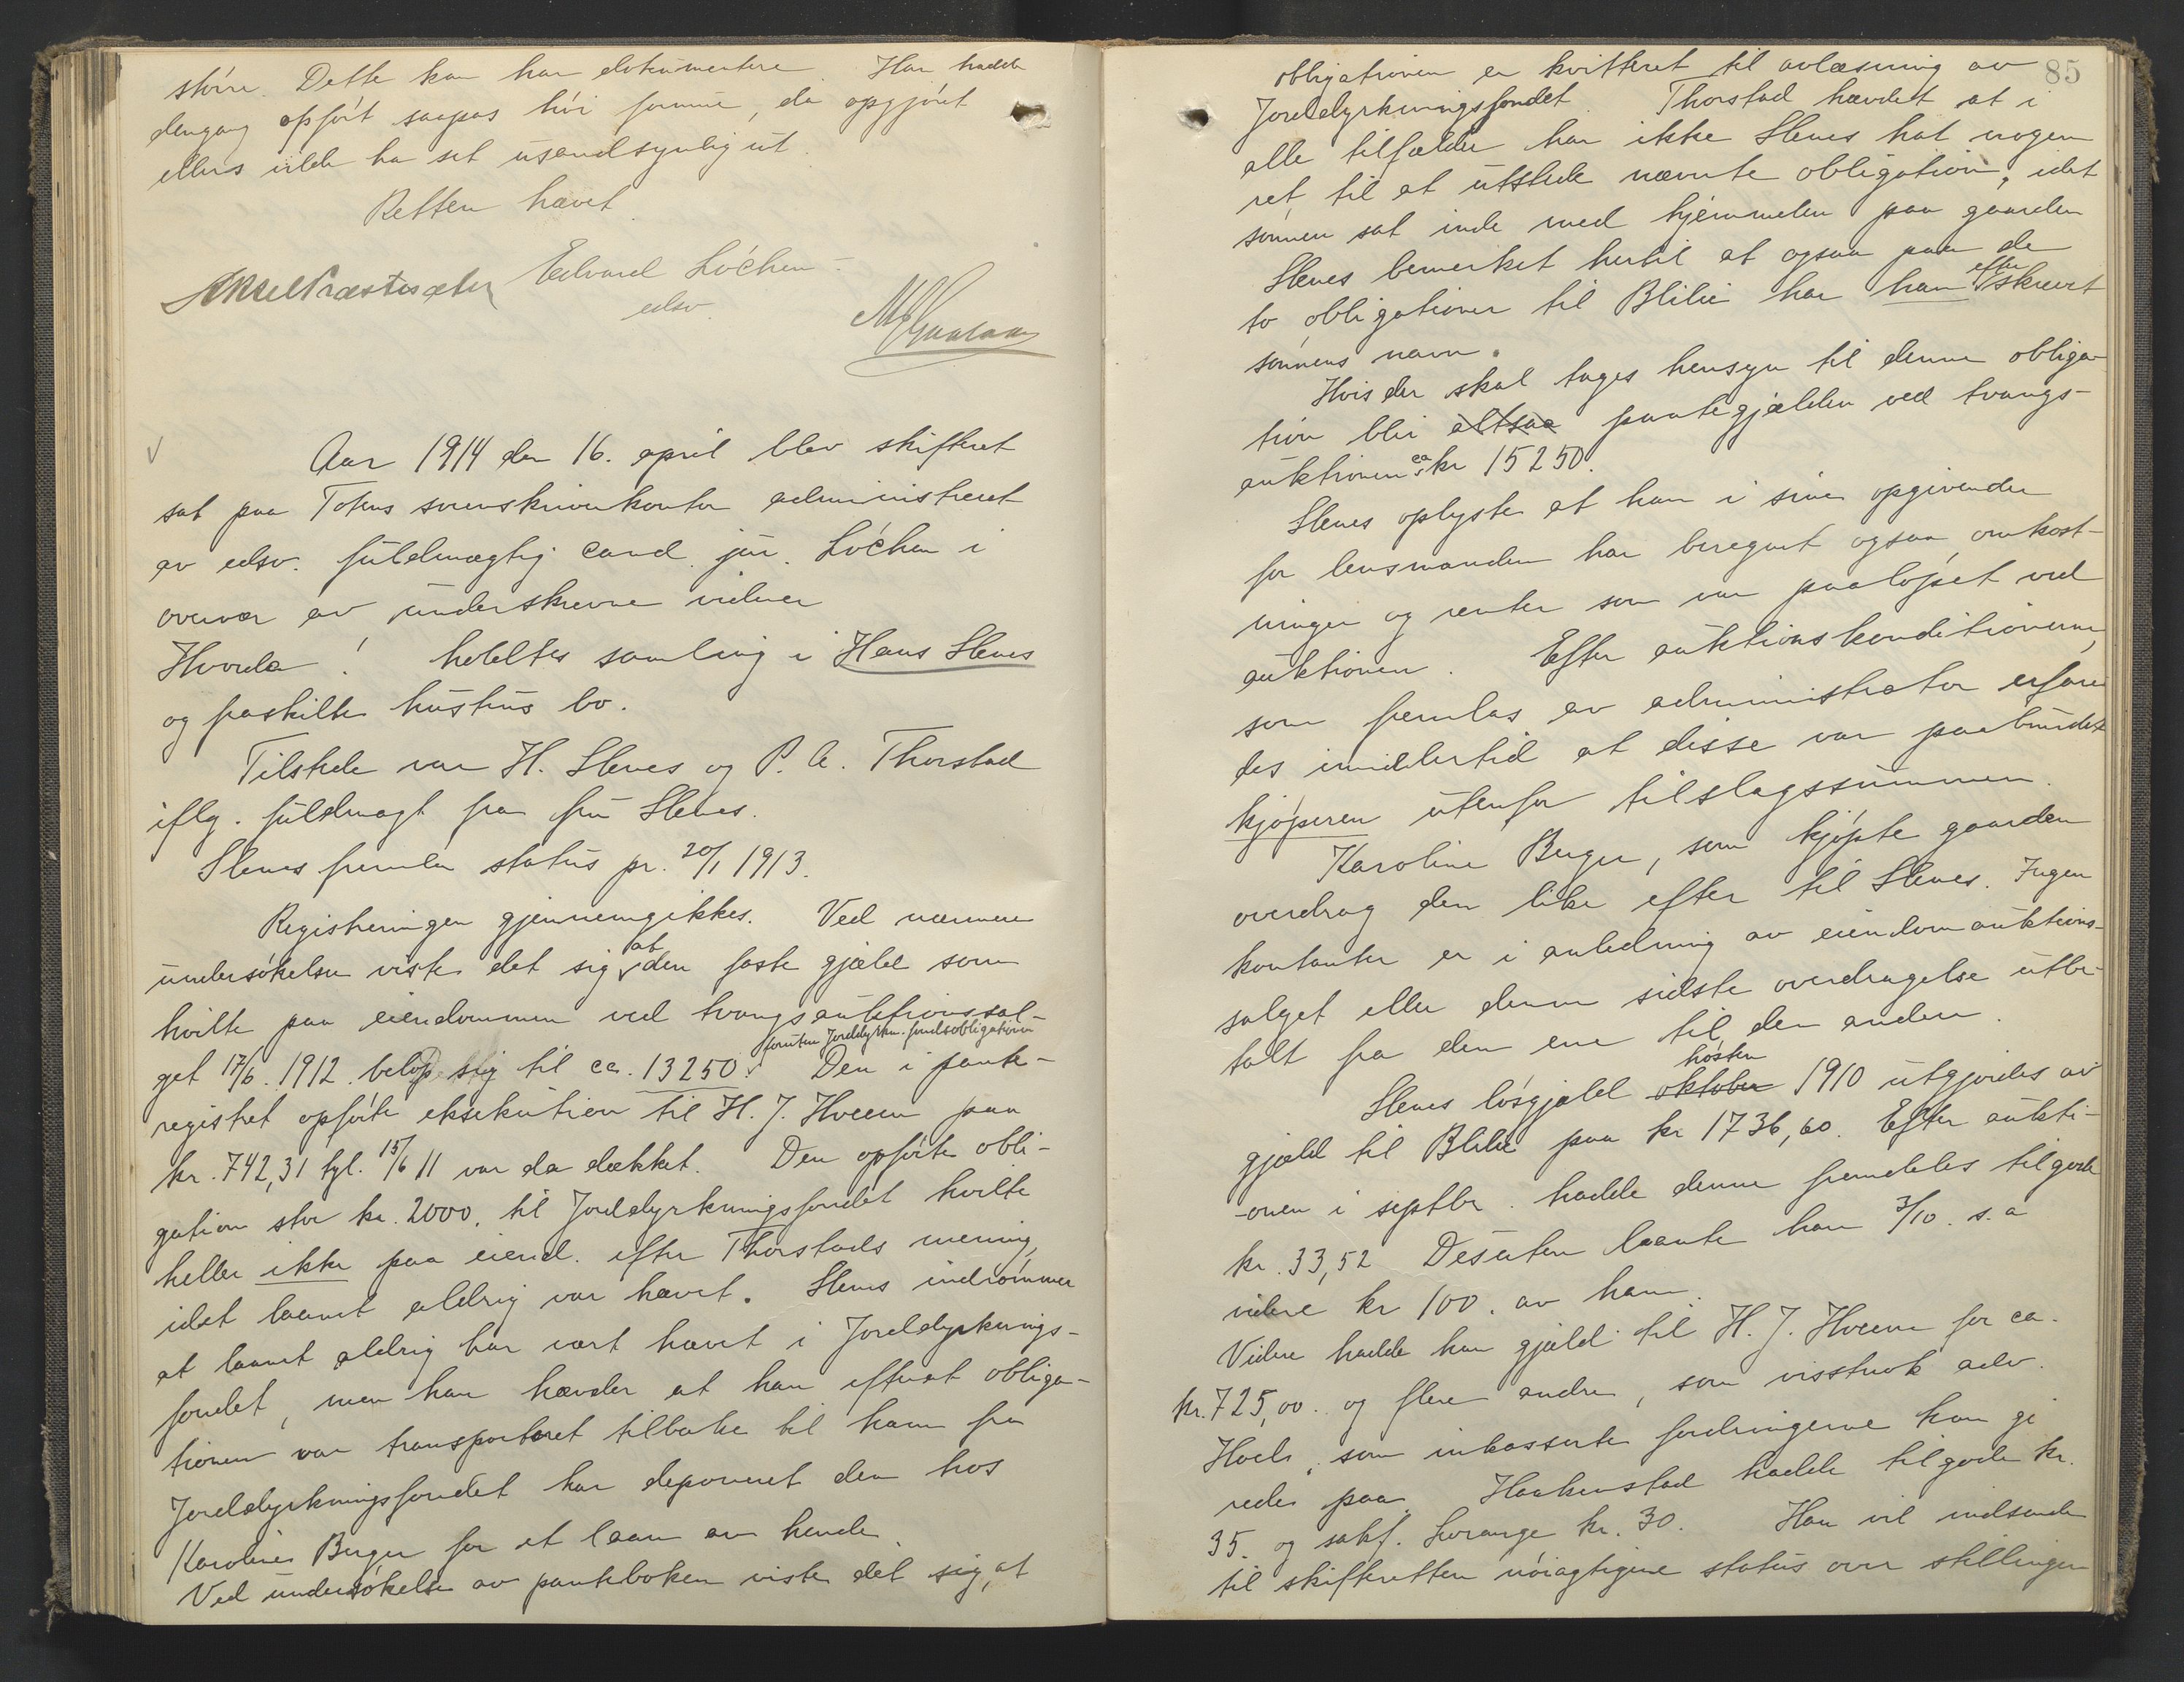 större. Dette kan han dokumentere. Han hadde
dengang opført saapas høi summe, da opgjøret
ellers vilde ha set usandsynlig ut.
Retten hævet.
Edvard Lóchen
edsv.
Aar 1914 den 16. april blev skifteret
sat paa Totens sorenskriverkontor administreret
av edsv. fuldmægtig cand. jur. Lóchen i
overvær av underskrevne vidner
Hvorda! holdtes samling i Hans Slenes
og fraskilte hustrus bo.
Tilstede var H. Slenes og P. A. Thorstad
iflg. fuldmagt fra fru Slenes.
Slenes fremla status pr. 20/1 1913.
Registreringen gjennemgikkes. Ved nærmere
undersøkelse viste det sig at den faste gjæld som
hvilte paa eiendommen ved tvangsauktionssal-
get 17/6. 1912. beløp sig til ca. 13250 foruten Jorddyrkn. fondsobligationen. Den i pante-
registret opførte eksekution til H. J. Hveem paa
kr. 742,31 tgl. 15/6 11 var da dækket. Den opførte obli-
gation stor kr. 2000. til Jorddyrkningsfondet hvilte
heller ikke paa eiend. efter Thorstads mening,
idet laanet aldrig var hævet. Slenes indrømmer
at laanet aldrig har vært hævet i Jorddyrknings-
fondet, men han hævder at han efterat obliga-
tionen var transporteret tilbake til ham fra
Jorddyrkningsfondet har deponeret den hos
Karoline Berger for et laan av hende.
Ved undersøkelse av panteboken viste det sig, at
85
obligationen er kvitteret til avlæsning av
Jorddyrkningsfondet. Thorstad hævdet at i
alle tilfælder har ikke Slenes hat nogen
ret til at utstede nævnte obligation, idet
sønnen sat inde med hjemmelen paa gaarden
Slenes bemerket hertil at ogsaa paa de
to obligationer til Blilie har han efterskrevet
sønnens navn.
Hvis der skal tages hensyn til denne obliga-
tion blir altsaa pantegjælden ved tvangs-
auktionen ca kr 15250.
Slenes oplyste at han i sine opgivender
for lensmanden har beregnet ogsaa omkost-
ninger og renter som var paaløpet ved
auktionen. Efter auktionskonditionerne,
som fremlas av administrator erfare-
des imidlertid at disse var paabyrdet
kjøperen utenfor tilslagssummen.
Karoline Berger, som kjøpte gaarden
overdrog den like efter til Slenes. Ingen
kontanter er i anledning av eiendomauktions-
salget eller denne sidste overdragelse utbe-
talt fra den ene til den anden.
Slenes løsgjæld oktober høsten 1910 utgjordes av
gjæld til Blilie paa kr 1736,60. Efter aukti-
onen i septbr. hadde denne fremdeles tilgode
kr. 33,52 Desuten laante han 3/10. s. a
videre kr 100. av ham.
Videre hadde han gjæld til H. J. Hveem for ca.
kr. 725,00. og flere andre, som visstnok adv.
Hoels, som inkasserte fordringerne kan gi
rede paa. Haakenstad hadde tilgode kr.
35. og sakf. Lorange kr. 30. Han vil indsende
til skifteretten nøiagtigere status over stillingen